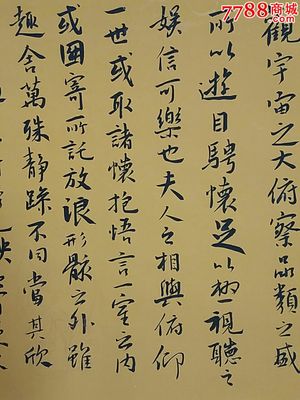 7788商城
觀宇宙之大俯察品類之盛
所以遊目騁懷足以極視聽之
娛信可樂也夫人之相與俯仰
一世或取諸懷抱悟言一室之內
或因寄所託放浪形骸之外雖
趣舍萬殊靜躁不同當其欣